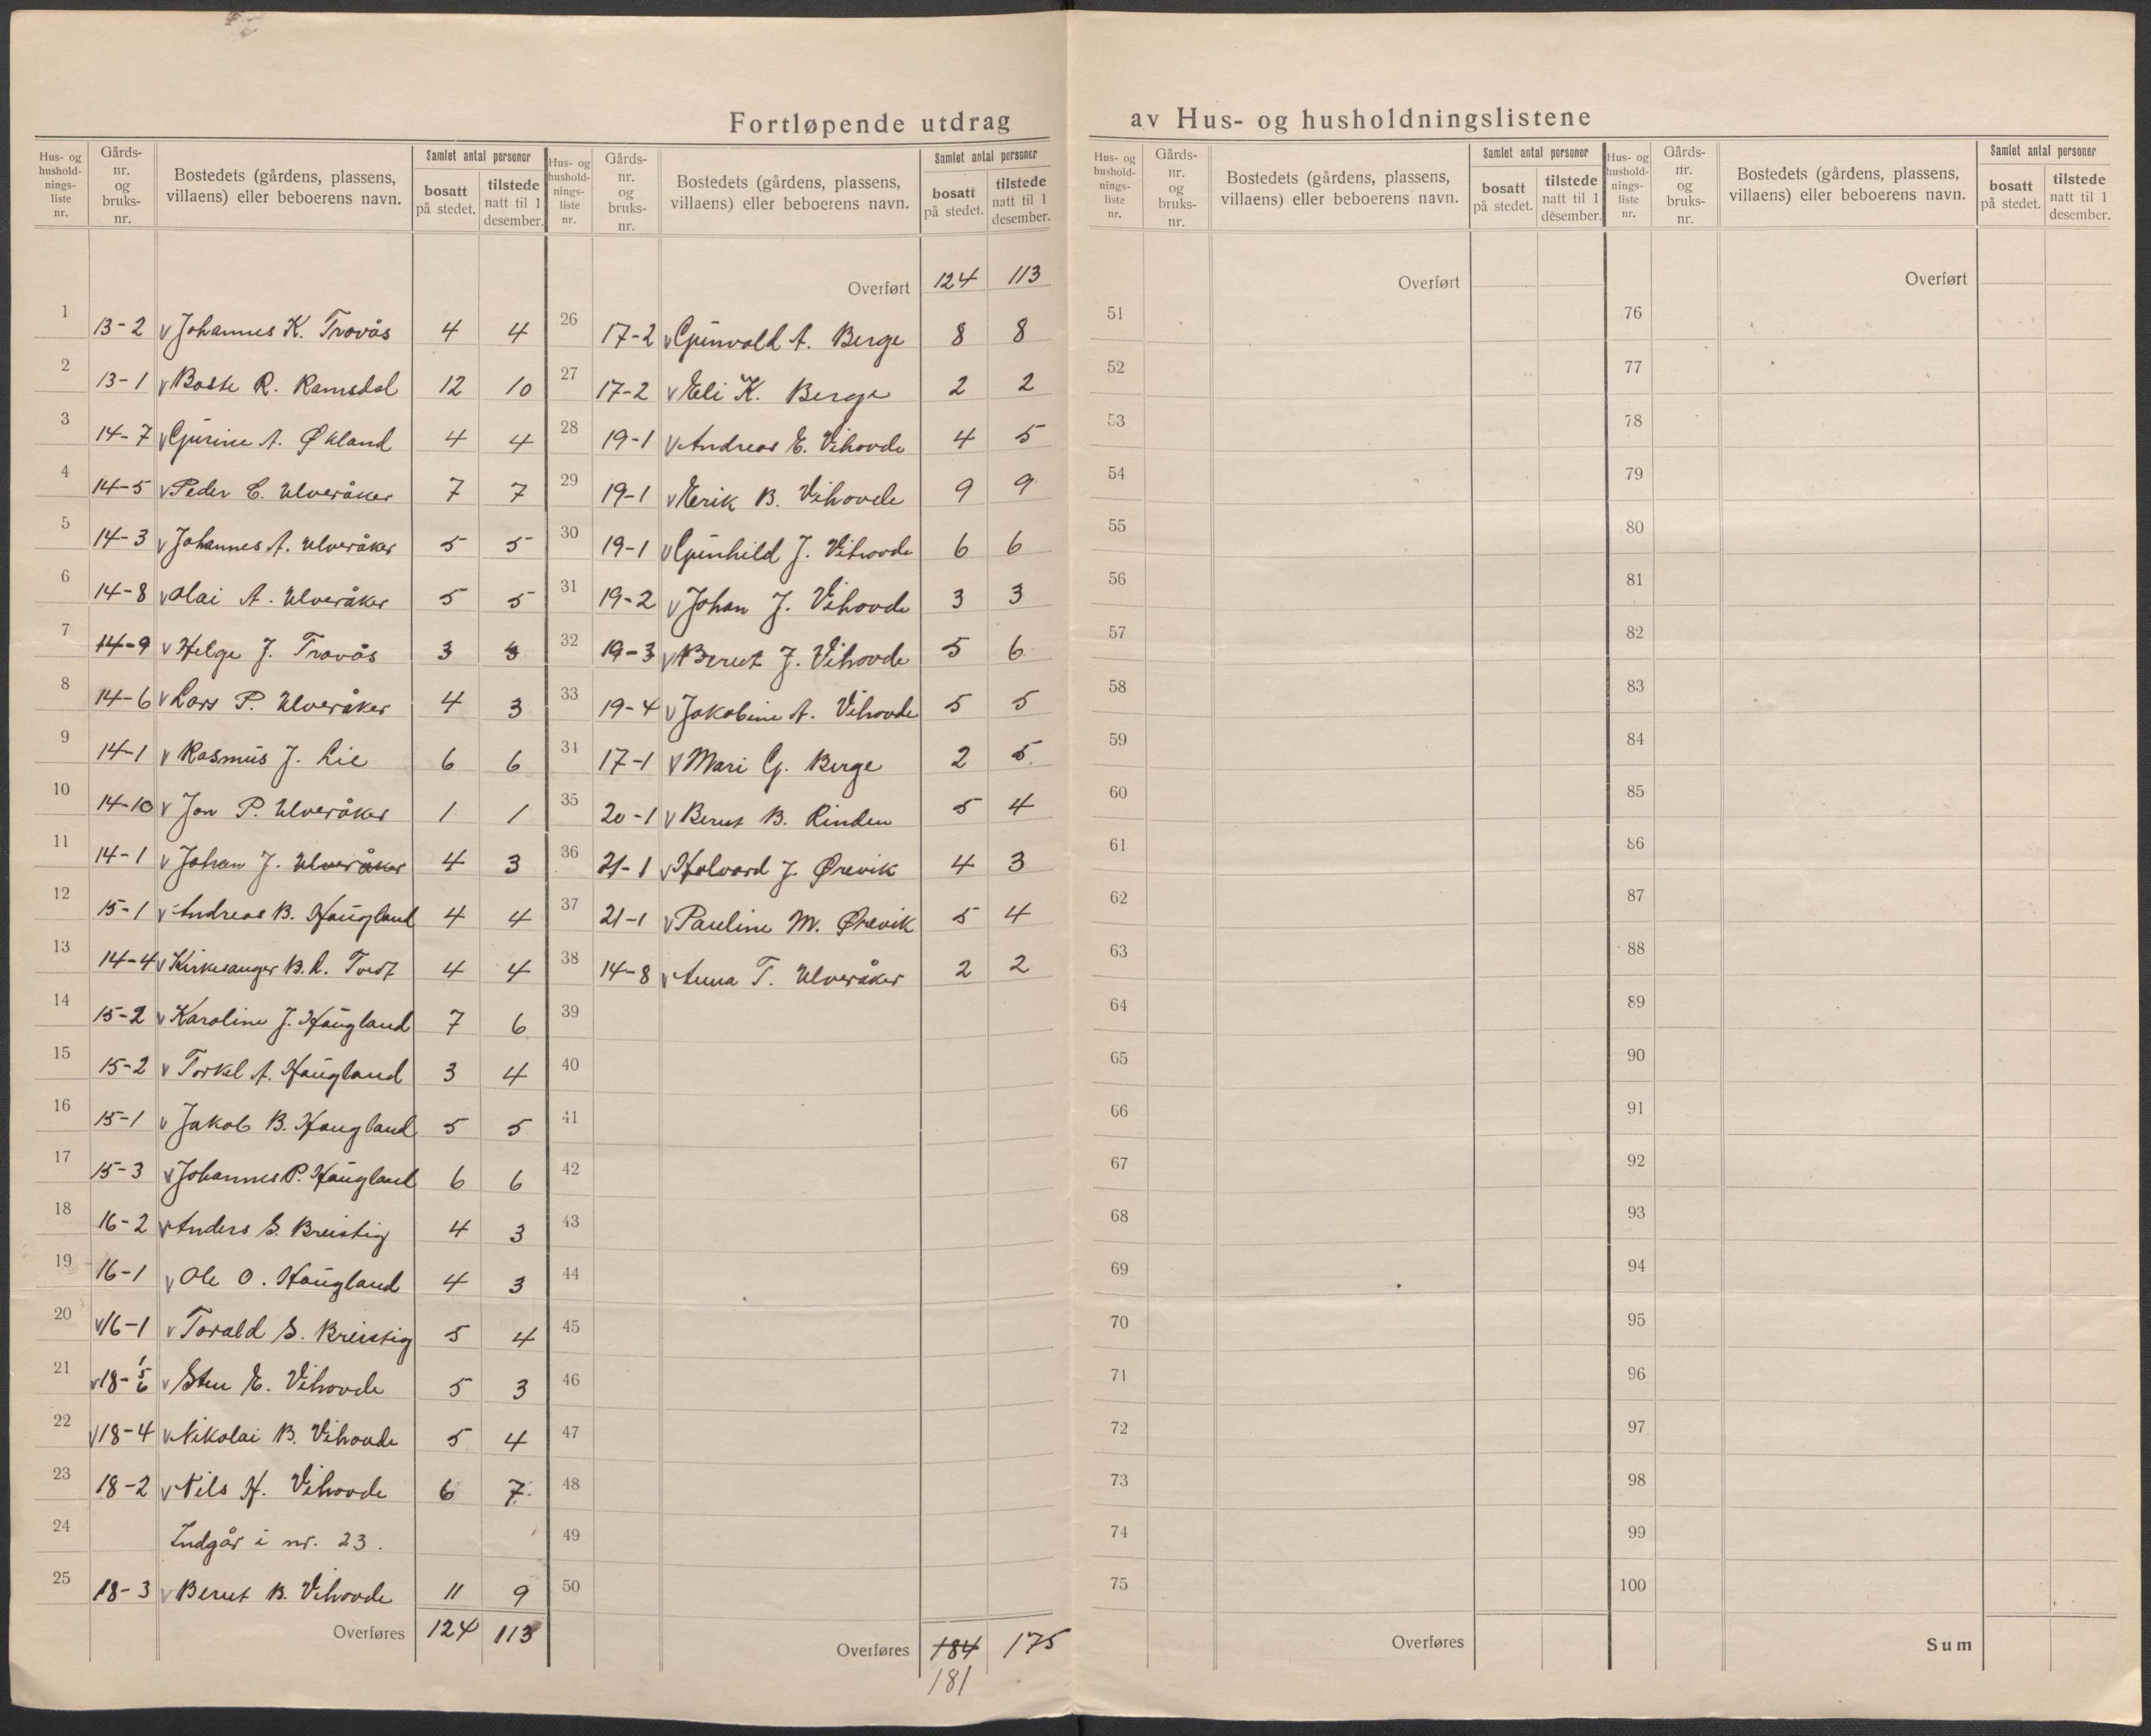 Fortløpende utdrag av Hus- og husholdningslistene
Hus- og hushold-nings-liste nr. | Gårds-nr. og bruks-nr. | Bostedets (gårdens, plassens, villaens) eller beboerens navn. | Samlet antal personer | bosatt på stedet. | tilstede natt til 1 desember.
1 13-2 v Johannes K. Trovås 4 4
2 13-1 v Boste R. Ramsdal 12 10
3 14-7 v Gurine A. Økland 4 4
4 14-5 v Peder C. Ulveråker 7 7
5 14-3 v Johannes A. Ulveråker 5 5
6 14-8 v Olai A. Ulveråker 5 5
7 14-9 v Helge J. Trovås 3 3
8 14-6 v Lars P. Ulveråker 4 3
9 14-1 v Rasmus J. Lie 6 6
10 14-10 v Jon P. Ulveråker 1 1
11 14-1 v Johan J. Ulveråker 4 3
12 15-1 v Andreas B. Haugland 4 4
13 14-4 v Kirkesanger B. L. Tvedt 4 4
14 15-2 v Karoline J. Haugland 7 6
15 15-2 v Torkel A. Haugland 3 4
16 15-1 v Jakob B. Haugland 5 5
17 15-3 v Johannes P. Haugland 6 6
18 16-2 v Anders S. Breistig 4 3
19 16-1 v Ole O. Haugland 4 3
20 v 16-1 v Torald S. Breistig 5 4
21 v 18-1 5 6 v Sten E. Vihovde 5 3
22 v 18-4 v Nikolai B. Vihovde 5 4
23 18-2 v Nils H. Vihovde 6 7
24 Indgår i nr. 23.
25 18-3 v Bernt B. Vihovde 11 9
Overføres 124 113
Hus- og hushold-nings-liste nr. | Gårds-nr. og bruks-nr. | Bostedets (gårdens, plassens, villaens) eller beboerens navn. | Samlet antal personer | bosatt på stedet. | tilstede natt til 1 desember.
Overført 124 113
26 17-2 v Gunvald A. Berge 8 8
27 17-2 v Eli K. Berge 2 2
28 19-1 v Andreas E. Vihovde 4 5
29 19-1 v Erik B. Vihovde 9 9
30 19-1 v Gunhild J. Vihovde 6 6
31 19-2 v Johan J. Vihovde 3 3
32 19-3 v Bernt J. Vihovde 5 6
33 19-4 v Jakobine A. Vihovde 5 5
34 17-1 v Mari G. Berge 2 5
35 20-1 v Bernt B. Rinden 5 4
36 21-1 v Halvard J. Ørevik 4 3
37 21-1 v Pauline M. Ørevik 5 4
38 14-8 v Anna T. Ulveråker 2 2
39
40
41
42
43
44
45
46
47
48
49
50
Overføres 184 175
181
Hus- og hushold-nings-liste nr. | Gårds-nr. og bruks-nr. | Bostedets (gårdens, plassens, villaens) eller beboerens navn. | Samlet antal personer | bosatt på stedet. | tilstede natt til 1 desember.
Overført
51
52
53
54
55
56
57
58
59
60
61
62
63
64
65
66
67
68
69
70
71
72
73
74
75
Overføres
Hus- og hushold-nings-liste nr. | Gårds-nr. og bruks-nr. | Bostedets (gårdens, plassens, villaens) eller beboerens navn. | Samlet antal personer | bosatt på stedet. | tilstede natt til 1 desember.
Overført
76
77
78
79
80
81
82
83
84
85
86
87
88
89
90
91
92
93
94
95
96
97
98
99
100
Sum